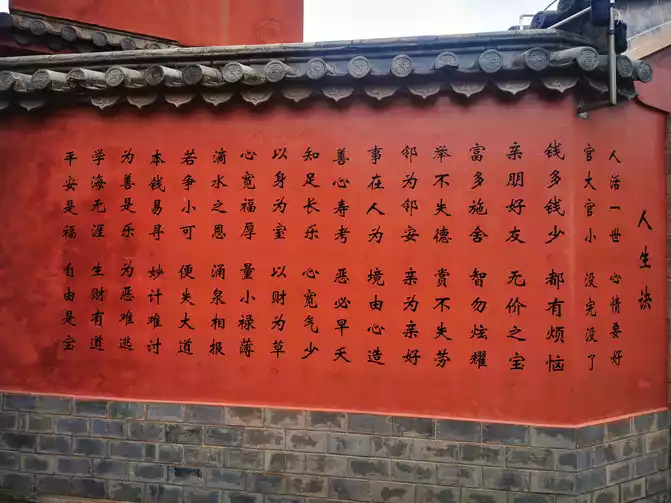 人生诀
人活一世 心情要好
官大官小 没完没了
钱多钱少 都有烦恼
亲朋好友 无价之宝
富多施舍 智勿炫耀
举不失德 赏不失劳
邻为邻安 亲为亲好
事在人为 境由心造
善心寿考 恶必早夭
知足长乐 心宽气少
以身为室 以财为草
心宽福厚 量小禄薄
滴水之恩 涌泉相报
若争小可 便失大道
本钱易寻 妙计难讨
为善是乐 为恶难逃
学海无涯 生财有道
平安是福 自由是宝